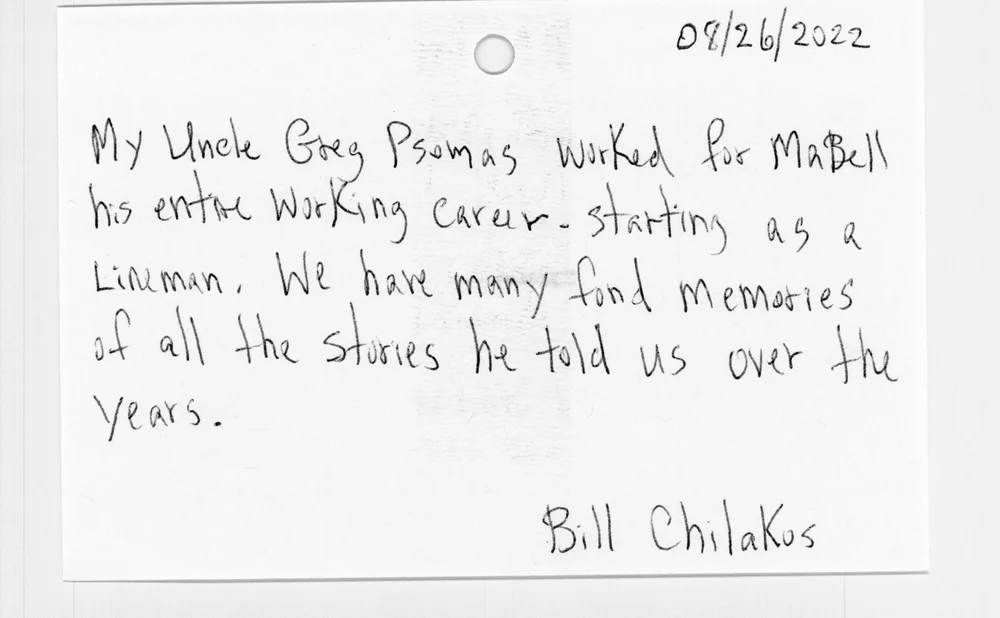 08/26/2022
My Uncle Greg Psomas worked for MaBell
his entire working career - starting as a
Lineman. We have many fond memories
of all the stories he told us over the
years.
Bill Chilakos